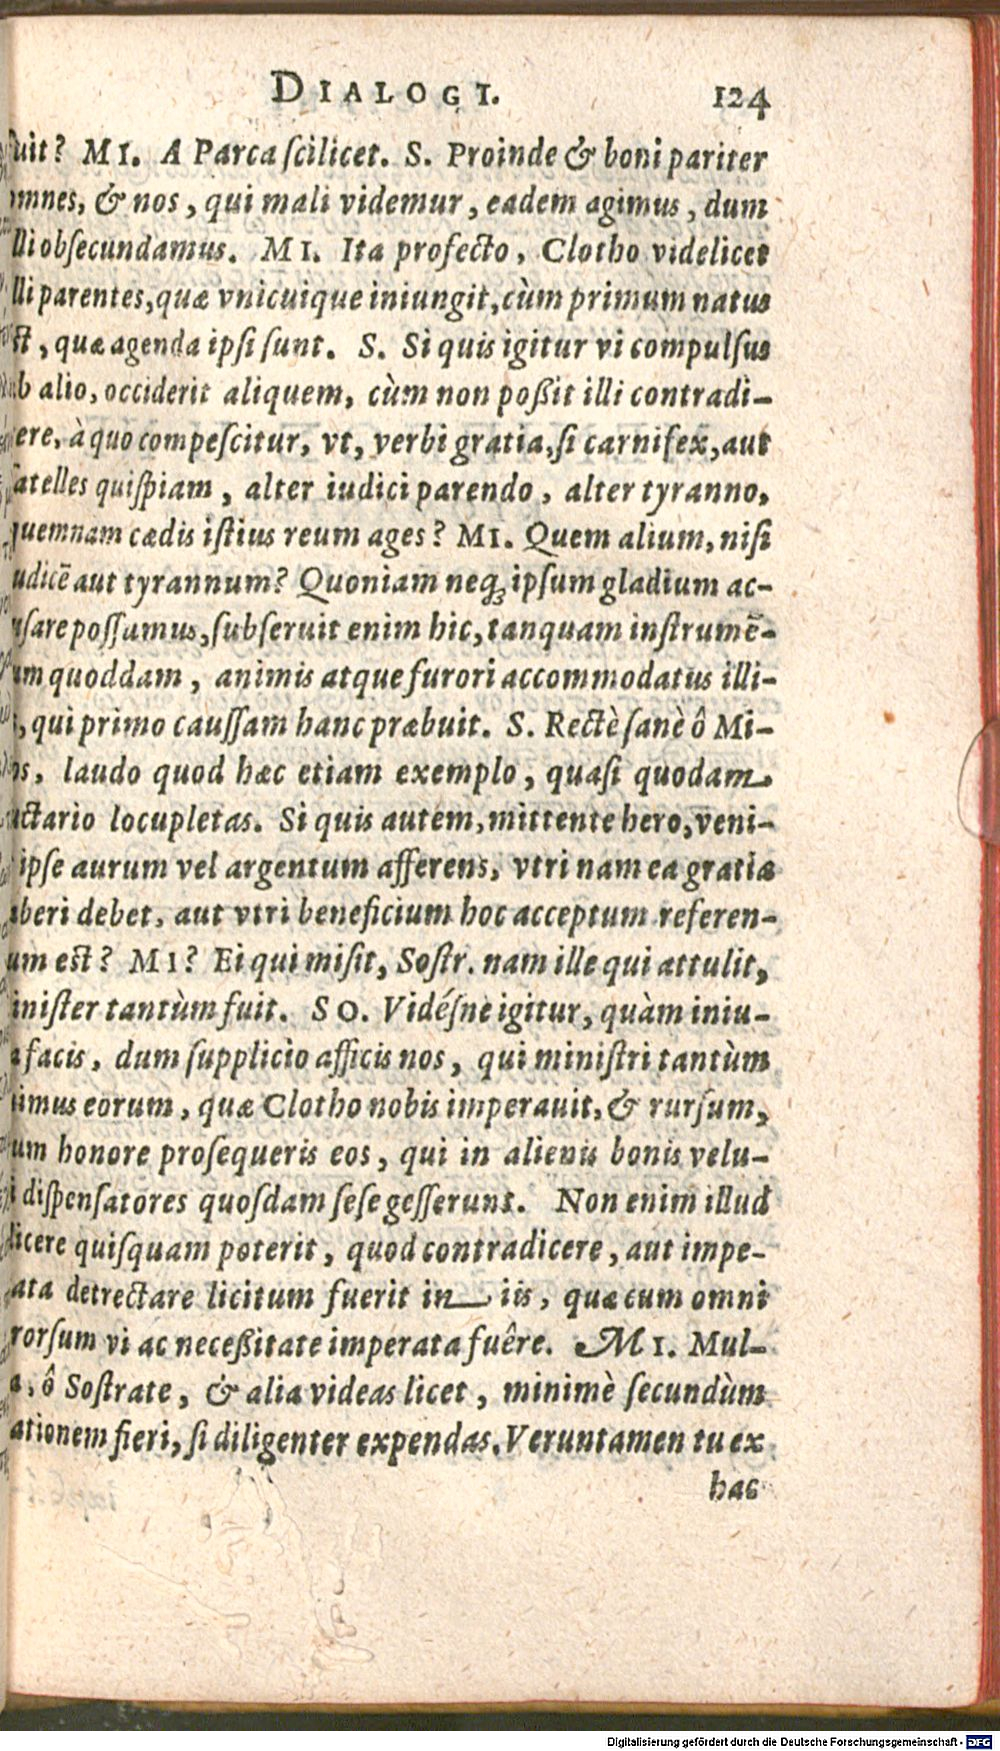 DIALOGI. 124
fuit? MI. A Parca ſcilicet. S. Proinde & boni pariter
omnes, & nos, qui mali videmur, eadem agimus, dum
lli obſecundamus. MI. Ita profecto, Clotho videlicet
lli parentes, quæ vnicuique iniungit, cùm primum natus
ſt, quæ agenda ipſi ſunt. S. Si quis igitur vi compulſus
b alio, occiderit aliquem, cùm non poßit illi contradi-
ere, à quo compeſcitur, vt, verbi gratia, ſi carnifex, aut
ſatelles quiſpiam, alter iudici parendo, alter tyranno,
quemnam cædis iſtius reum ages? MI. Quem alium, niſi
udicē aut tyrannum? Quoniam neqꝫ ipſum gladium ac-
uſare poſſumus, ſubſeruit enim hic, tanquam inſtrumē-
um quoddam, animis atque furori accommodatus illi-
, qui primo cauſſam hanc præbuit. S. Rectè ſanè ô Mi-
os, laudo quod hæc etiam exemplo, quaſi quodam
uctario locupletas. Si quis autem, mittente hero, veni-
ipſe aurum vel argentum afferens, vtri nam ea gratia
aberi debet, aut vtri beneficium hoc acceptum referen-
um est? MI? Ei qui miſit, Soſtr. nam ille qui attulit,
iniſter tantùm fuit. SO. Vidéſne igitur, quàm iniu-
a facis, dum ſupplicio afficis nos, qui miniſtri tantùm
uimus eorum, quæ Clotho nobis imperauit, & rurſum,
um honore proſequeris eos, qui in alienis bonis velu-
i diſpenſatores quoſdam ſeſe geſſerunt. Non enim illud
dicere quiſquam poterit, quod contradicere, aut impe-
ata detrectare licitum fuerit in iis, quæ cum omni
rorſum vi ac neceßitate imperata fuêre. MI. Mul-
a, ô Soſtrate, & alia videas licet, minimè ſecundùm
ationem fieri, ſi diligenter expendas. Veruntamen tu ex
hac
Digitalisierung gefördert durch die Deutsche Forschungsgemeinschaft - DFG